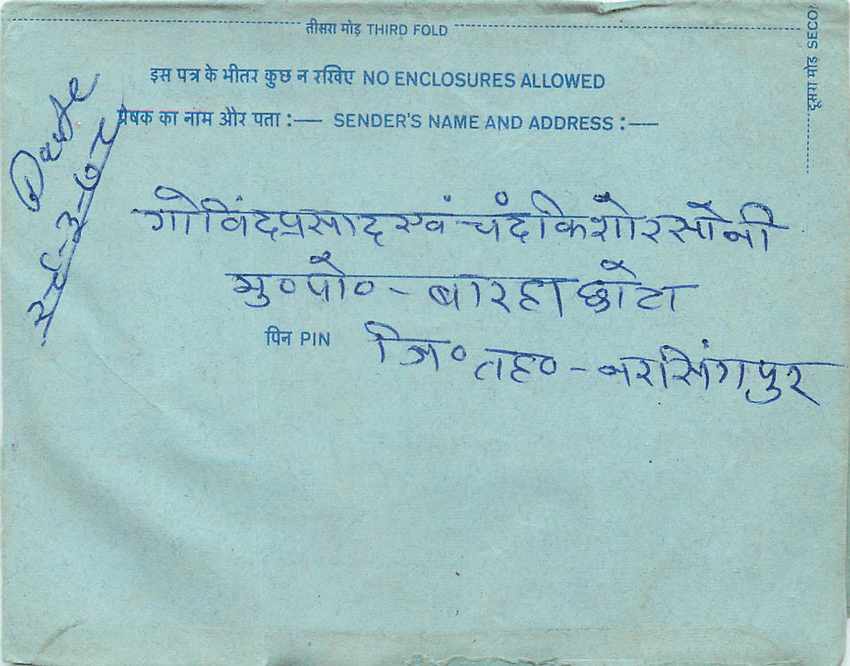 तीसरा मोड़ THIRD FOLD
दूसरा मोड़ SECO
इस पत्र के भीतर कुछ न रखिए NO ENCLOSURES ALLOWED
प्रेषक का नाम और पता :— SENDER'S NAME AND ADDRESS :—
Date
गोविंदप्रसाद एवं चंदकिशोर सोनी
मु०पो०-बारहा छोटा
पिन PIN
जि० तह०-नरसिंगपुर